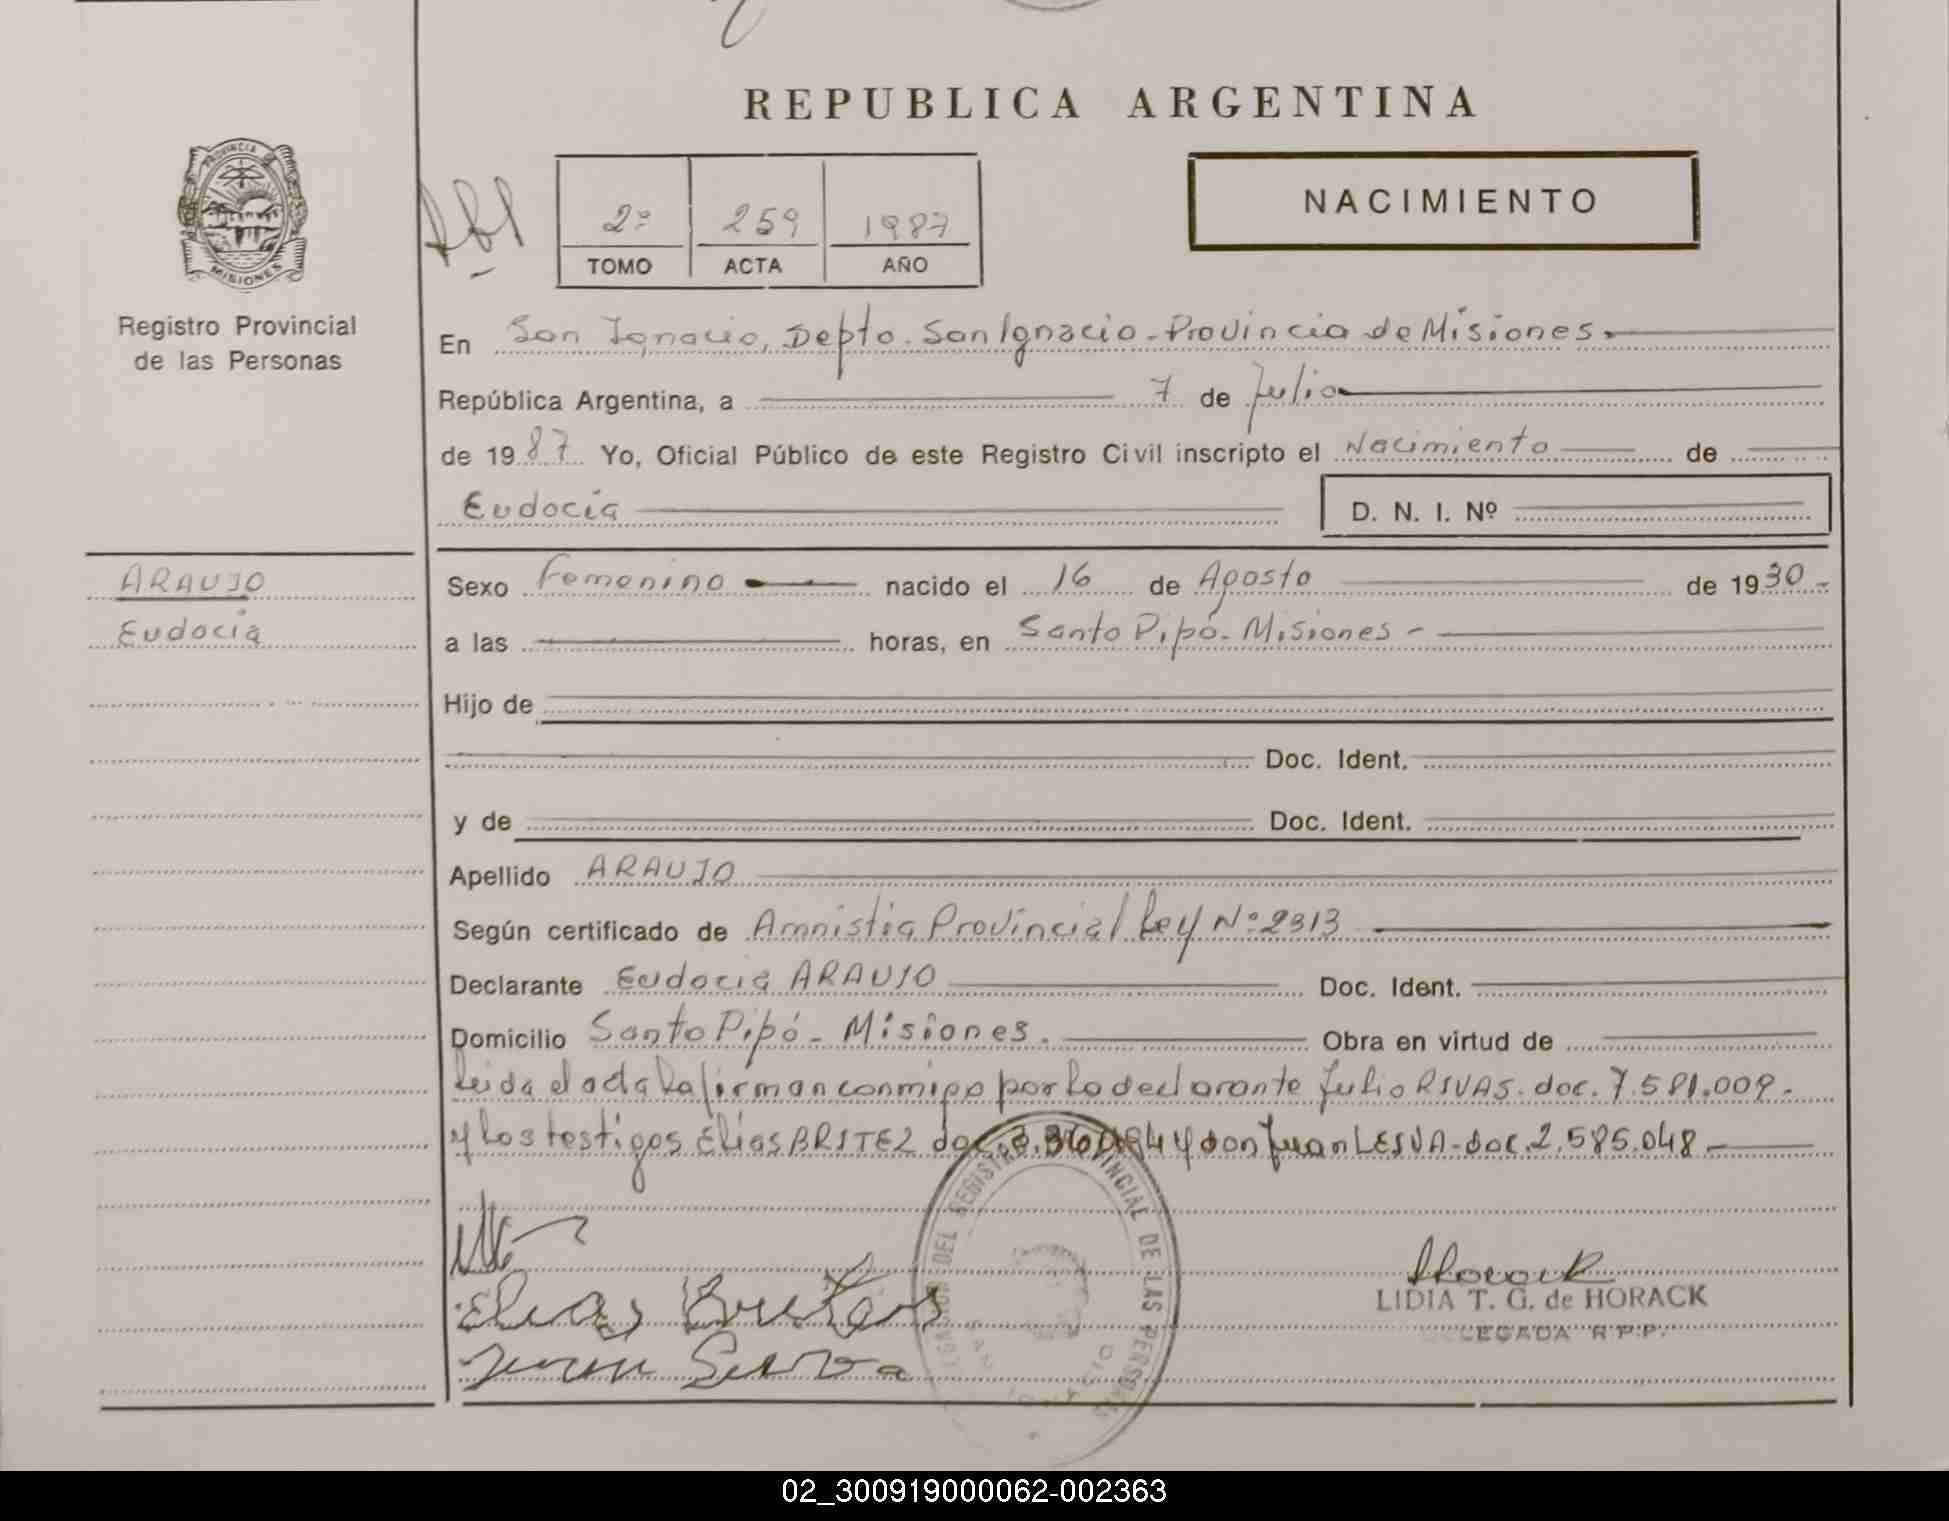 REPUBLICA ARGENTINA
PROVINCIA DE
MISIONES
Registro Provincial
de las Personas
2º 259 1987
TOMO ACTA AÑO
NACIMIENTO
En San Ignacio, Depto. San Ignacio - Provincia de Misiones.
República Argentina, a 7 de Julio
de 1987 Yo, Oficial Público de este Registro Civil inscripto el Nacimiento de
Eudocia D. N. I. Nº
ARAUJO
Eudocia
Sexo Femenino nacido el 16 de Agosto de 1930.-
a las horas, en Santo Pipó - Misiones -
Hijo de
Doc. Ident.
y de Doc. Ident.
Apellido ARAUJO
Según certificado de Amnistia Provincial Ley Nº 2313
Declarante Eudocia ARAUJO Doc. Ident.
Domicilio Santo Pipó - Misiones. Obra en virtud de
Leida el acta La firman conmigo por La declarante Julio RIVAS. doc. 7.581.009.
y Los testigos Elias BRITEZ doc. y don Juan doc. 2.585.048.-
DEL REGISTRO PROVINCIAL DE LAS PERSONAS
SAN IGNACIO
Elias
Juan
Horack
LIDIA T. G. de HORACK
DELEGADA R.P.P.
02_300919000062-002363